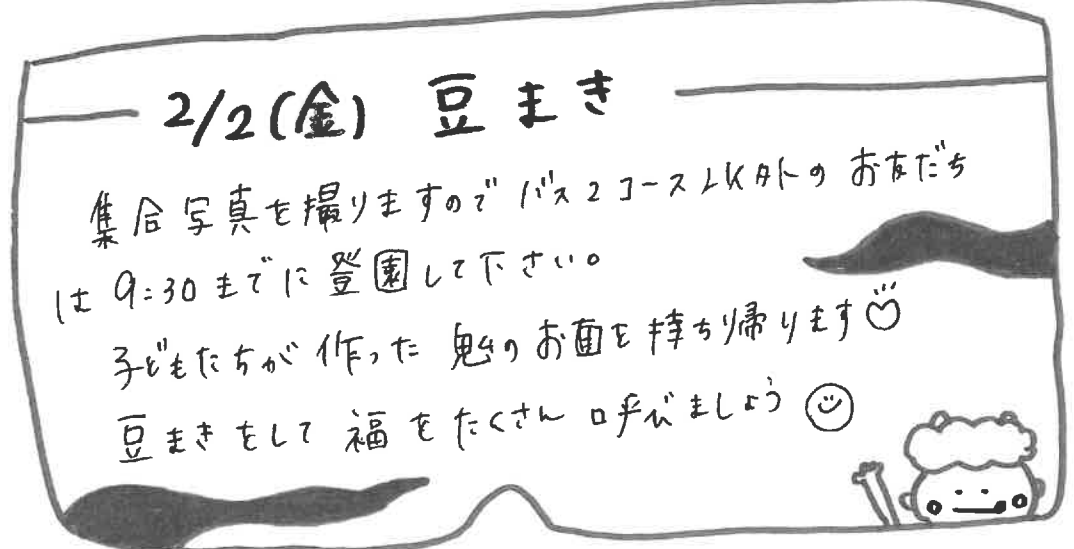 2/2(金) 豆まき
集合写真を撮りますので バス2コース以外の お友だち
は 9:30までに 登園して下さい。
子どもたちが 作った 鬼の お面を 持ち帰ります♡
豆まきをして 福をたくさん 呼びましょう☺